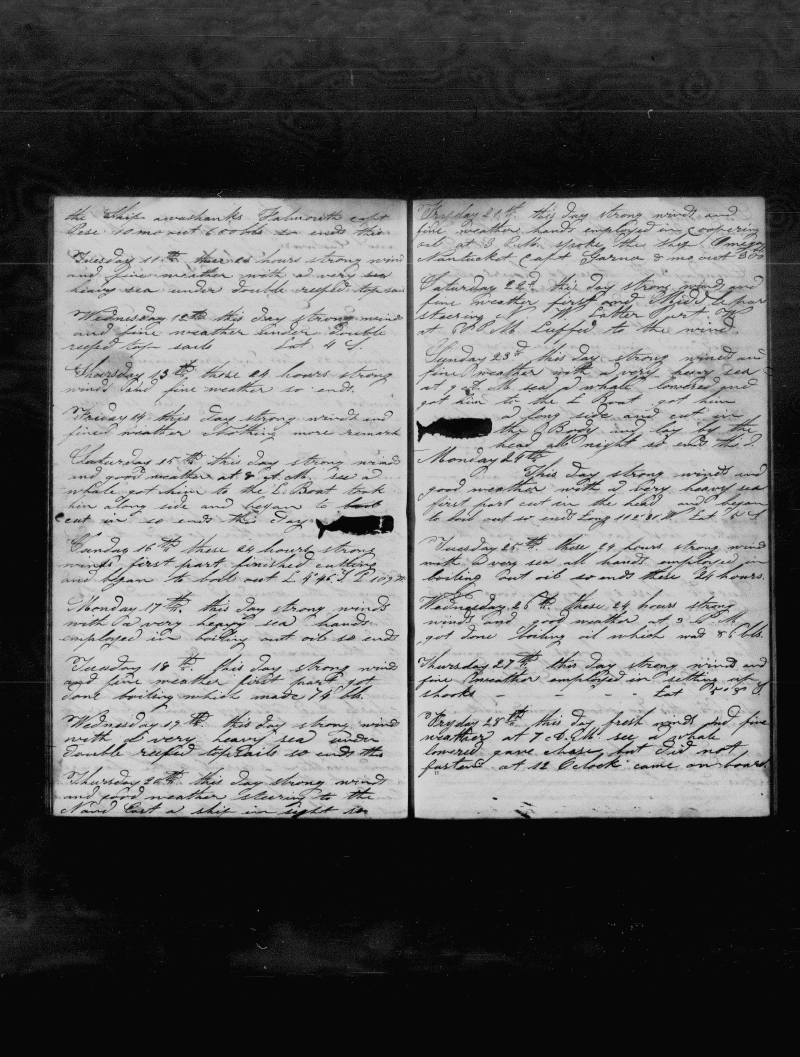 the Ship awashanks Falmouth capt
Pese 10 mo out 600 bbls so ends this
Tuesday 11th these 24 hours strong wind
and fine weather with a very sea
heavy sea under double reefed top sai
Wednesday 12th this day strong wind
and fine weather under double
reefed top sails Lat 4 S.
Thursday 13th these 24 hours strong
winds and fine weather so ends.
Friday 14 this day strong winds and
fined weather Nothing more remark
Saturday 15th this day strong wind
and good weather at 8 see a
whale got him to the L Boat took
him along side and began to
cut in so ends the day
Sunday 16th these 24 hours strong
winds first part finished cutting
and began to boile out
Monday 17th this day strong winds
with a very heavy sea hands
employed in boiling out oil so ends
Tuesday 18th this day strong wind
and fine weather first part got
done boiling which made 74 bb.
Wednesday 19th this day strong wind
with a very heavy sea under
double reefed topsails so ends the
Thursday 20th this day strong wind
and good weather steering to the
Nord East a ship in sight so
Fryday 21th this day strong winds and
fine weather hands employed in coopering
oil at 3 P.M. spoke the ship Omega
Nantucket Capt 8 mo out 300
Saturday 22d this day strong wind and
fine weather first and Midd le par
steering N. W Latter part
at P.M Luffed to the wind.
Sunday 23d this day strong wined and
fine weather with a very heavy sea
at 9 M sea a whale lowered and
got him to the L Boat got him
a long side and cut in
the Body and lay by the
head all night so ends this
Monday 24th
This day strong winds and
good weather with a very heavy sea
first part cut in the head and began
to boil out so ends Long Lat
Tuesday 25th these 24 hours strong wind
with a very sea all hands employed in
boiling out oil so ends these 24 hours.
Wednesday 26th these 24 hours strong
winds and good weather at 3 P.M
got done boiling oil which mad 86 bb.
Thursday 27th this day strong winds and
fine weather employed in setting up
shooks - - - - Lat
Fryday 28th this day fresh winds and fine
weather at 7 A.M see a whale
lowered gave chase but did not
fasten at 12 Oclock came on board